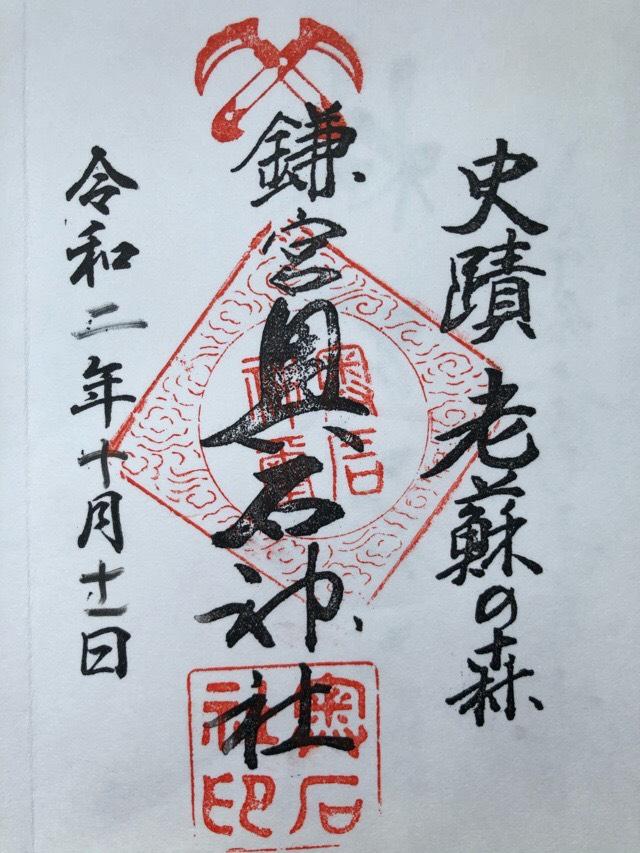 史蹟 老蘇の森
鎌宮奥石神社
令和二年十月十一日
奥石
神社
奥石
社印